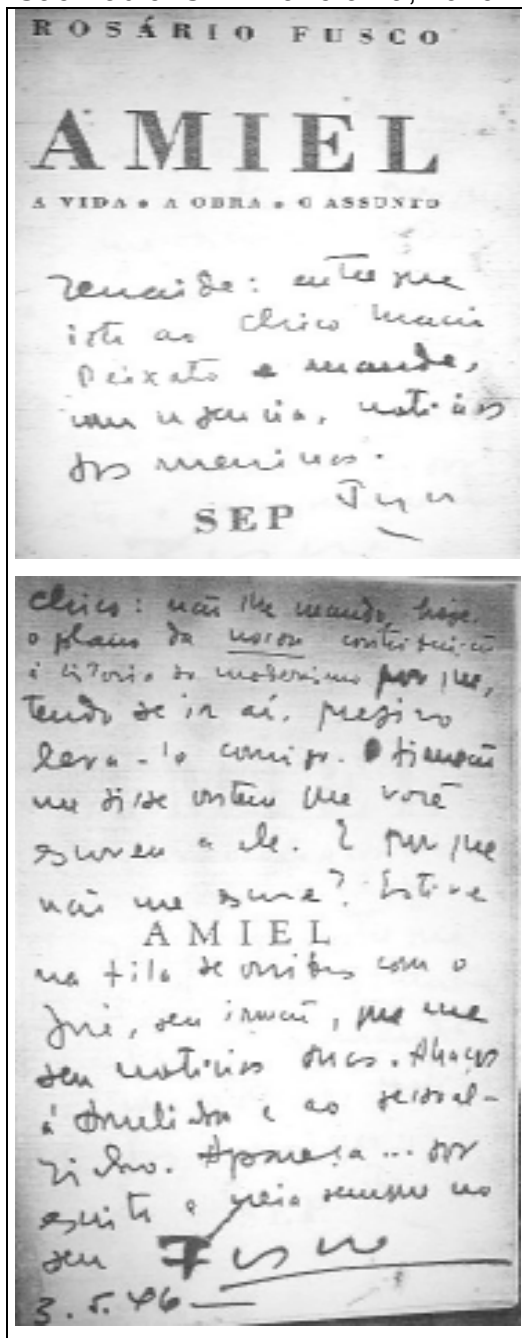 ROSÁRIO FUSCO
AMIEL
A VIDA • A OBRA • O ASSUNTO
entregue
isto ao Chico
Peixoto e mande,
com urgencia, noticias
dos meninos.
SEP
Chico: não lhe mando, hoje,
o plano da nossa contribuição
à história do modernismo porque,
tendo de ir aí, prefiro
leva-lo comigo. O
me disse ontem que você
escreveu a ele. E porque
não me escreve? Estive
AMIEL
na fila de onibus com o
José, seu irmão, que me
deu noticias suas. Abraços
à Amelinha e ao
Apareça... por
escrito e creia sempre no
seu Fusco
3.5.46